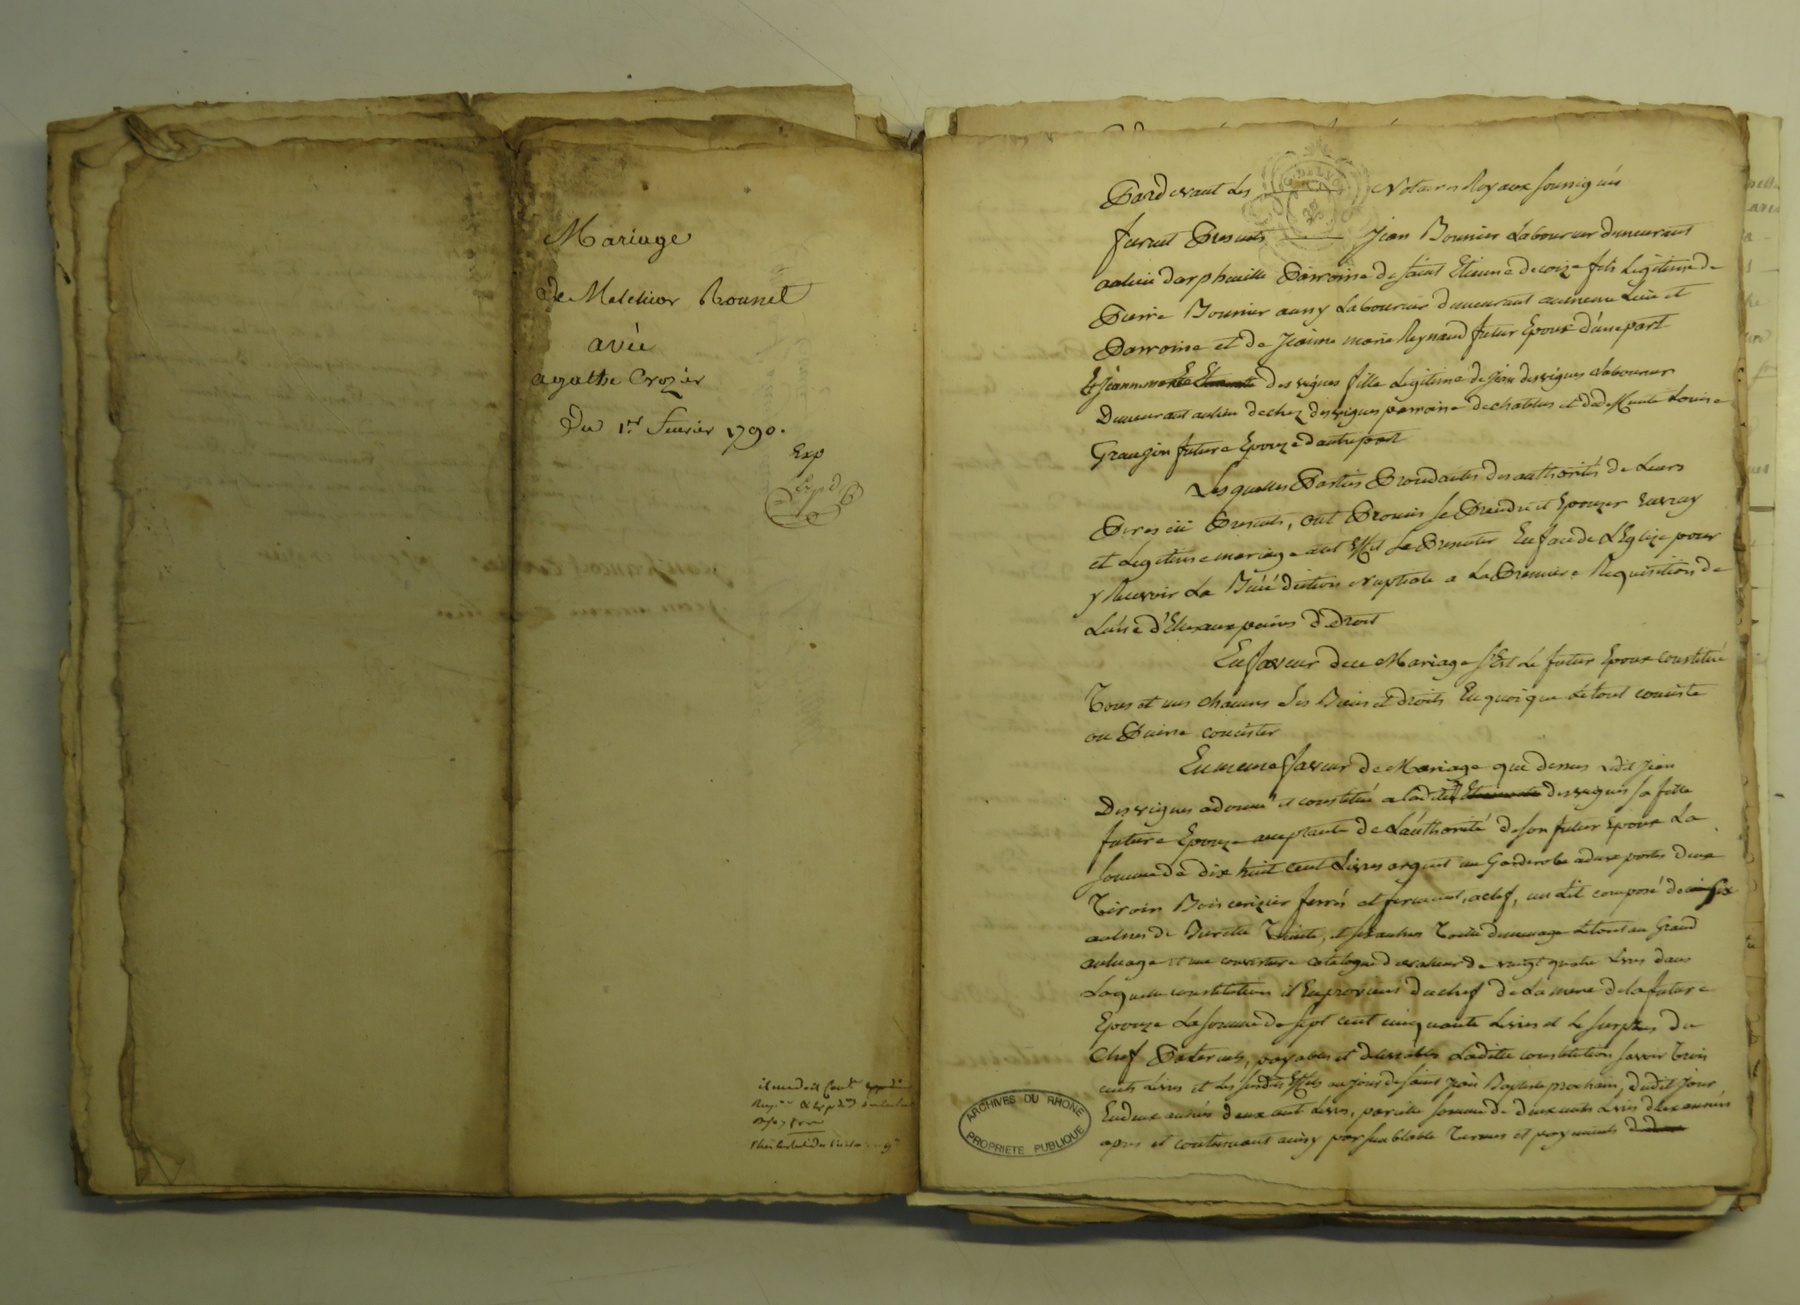 Mariage
de Melchior Bounel
avec
agathe Crozier
Du 1er fevrier 1790.
Exp
Pardevant Les Notaires Royaux soussignés
furent Presents Jean Bounier Laboureur demeurant
au lieu d'arpheuille Parroisse de saint Etienne de coize fils Legitime de
Pierre Bounier aussy Laboureur demeurant au meme Lieu et
Parroisse et de Jeanne marie Reynaud futur Epoux d'une part
Et Jeanne marie desvignes fille Legitime de Jean desvignes Laboureur
Demeurant au lieu de chez desvignes parroisse de chatelus et de Louise
Granjon future Epouze d'autre part
Les quelles Parties Procedantes des authorités de Leurs
Peres ici Presents, ont Promis se Prendre et Epouzer En vray
et Legitime mariage et se Presenter En face de L'Eglize pour
y Recevoir La Bénédiction Nuptiale a La Premiere Requisition de
L'une d'Elles aux peines de Droit
En faveur de ce Mariage s'Est Le futur Epoux constitué
Tous et uns chacuns ses Biens et droits En quoique Le tout consiste
ou Puisse consister
En meme faveur de Mariage que dessus Ledit Jean
Desvignes a donné et constitué a ladite desvignes sa fille
future Epouze acceptante de L'authorité de son futur Epoux La
somme de dix huit cent Livres argent un Garderobe a deux portes deux
Tiroirs Bois cerizier ferrés et fermant a clef, un Lit composé de six
aulnes de Toille de menage Le tout au Grand
aulnage et une couverture catalogne de valleur de vingt quatre Livres dans
Laquelle constitution il En provient du chef de La mere de la future
Epouze La somme de sept cent cinquante Livres et Le surplus du
Chef Paternel, payables et delivrables Ladite constitution savoir Trois
cents Livres et Les susdits Effets au jour de saint Jean Baptiste prochain, dudit jour
En deux années deux cent Livres, pareille somme de deux cents Livres deux années
apres et continuant ainsy par semblable Termes et payements
ARCHIVES DU RHONE
PROPRIETE PUBLIQUE